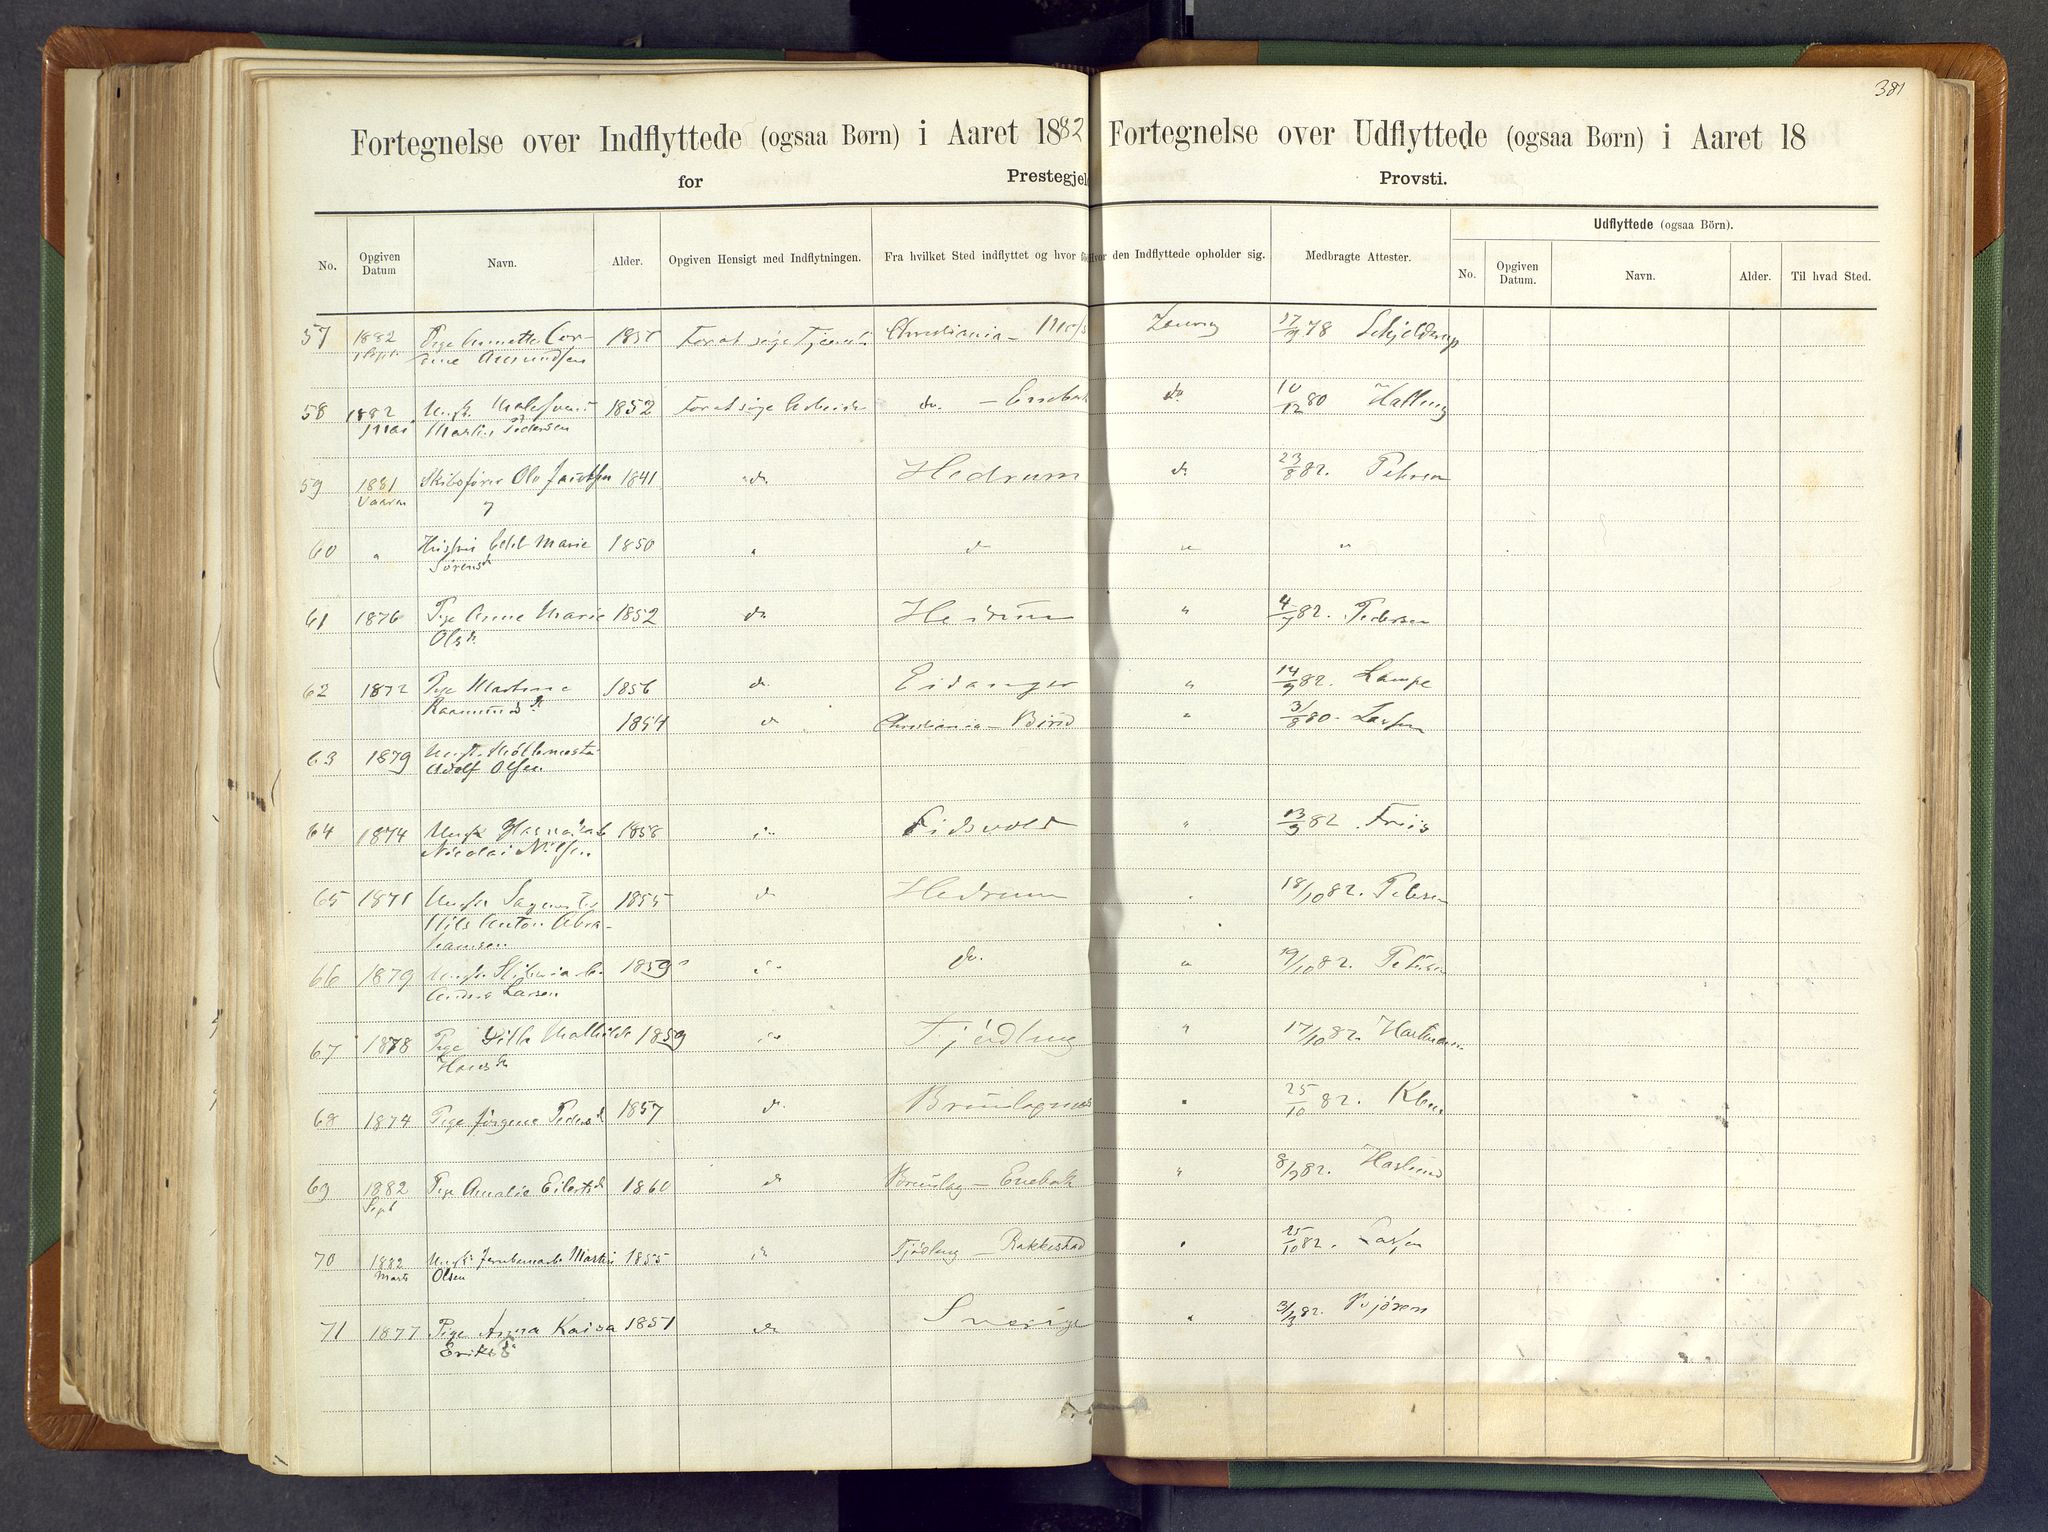 381
Fortegnelse over Indflyttede (ogsaa Børn) i Aaret 1882
for Prestegjel
Fortegnelse over Udflyttede (ogsaa Børn) i Aaret 18
Provsti.
No. Opgiven Datum Navn. Alder. Opgiven Hensigt med Indflytningen. Fra hvilket Sted indflyttet og hvor den Indflyttede opholder sig. Medbragte Attester.
Udflyttede (ogsaa Börn).
No. Opgiven Datum. Navn. Alder. Til hvad Sted.
57 1882 Pige Annette Cor- For at søge Christiania 27/9 78 Schjelderup
Amundsen
58 1882 Ungk. 1852 For at søge Arbeide do. – Enebak do 10/12 80 Halling
Mai Martin Pedersen
59 1881 Skibsfører Ole 1841 do Hedrum do 23/8 82. Petersen
Vaaren
60 " Hustru Edel Marie 1850 " do " "
Sørensd.
61 1876 Pige Anne Marie 1852 do Hedrum " 4/9 82. Pedersen
Olsd.
62 1872 Pige Martine 1856 do. Eidanger " 14/9 82. Lampe
Rasmusd.
1854 do Christiania – Birid " 3/8 80. Larsen
63 1879 Ungk.
Adolf Olsen
64 1874 Ungk. 1858 do Eidsvold " 13/9 82. Friis
Nicolai Nilsen
65 1871 Ungk. 1855 do Hedrum " 18/10 82. Petersen
Nils Anton Abra-
hamsen
66 1879 Ungk. 1859 do do. " 19/10 82. Petersen
Anders Larsen
67 1878 Pige Mathilde 1859 do Tjödling " 17/10 82. Hartmann
Hansd.
68 1874 Pige Jörgine Pedersd. 1857 do. Brunlagnes " 25/10 82. Klem
69 1882 Pige Amalie Eilertsd. 1860 do Brunlag – Enebak " 8/9 82. Haslund
Sept
70 1882 Ungk. Jernbanearb. Martin 1855 do Tjödling – Rakkestad " 25/10 82. Larsen
Marts Olsen
71 1877 Pige Anna Kaisa 1851 do Sverige " 3/3 82.
Eriksd.